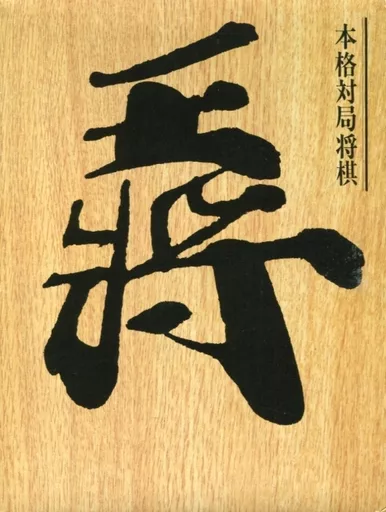 本格対局将棋
王將